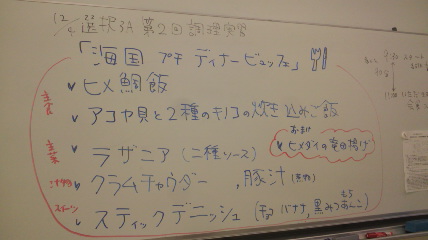 12/4 選択3A 第2回調理実習
「海国 プチ ディナービュッフェ」
主食
ヒメ鯛飯
アコヤ貝と2種のキノコの炊き込みご飯
主菜
ラザニア (二種ソース)
おまけ
ヒメダイの竜田揚げ
汁物
クラムチャウダー , 豚汁
スイーツ
スティックデニッシュ (チョコ バナナ, 黒みつあんこ)
もち